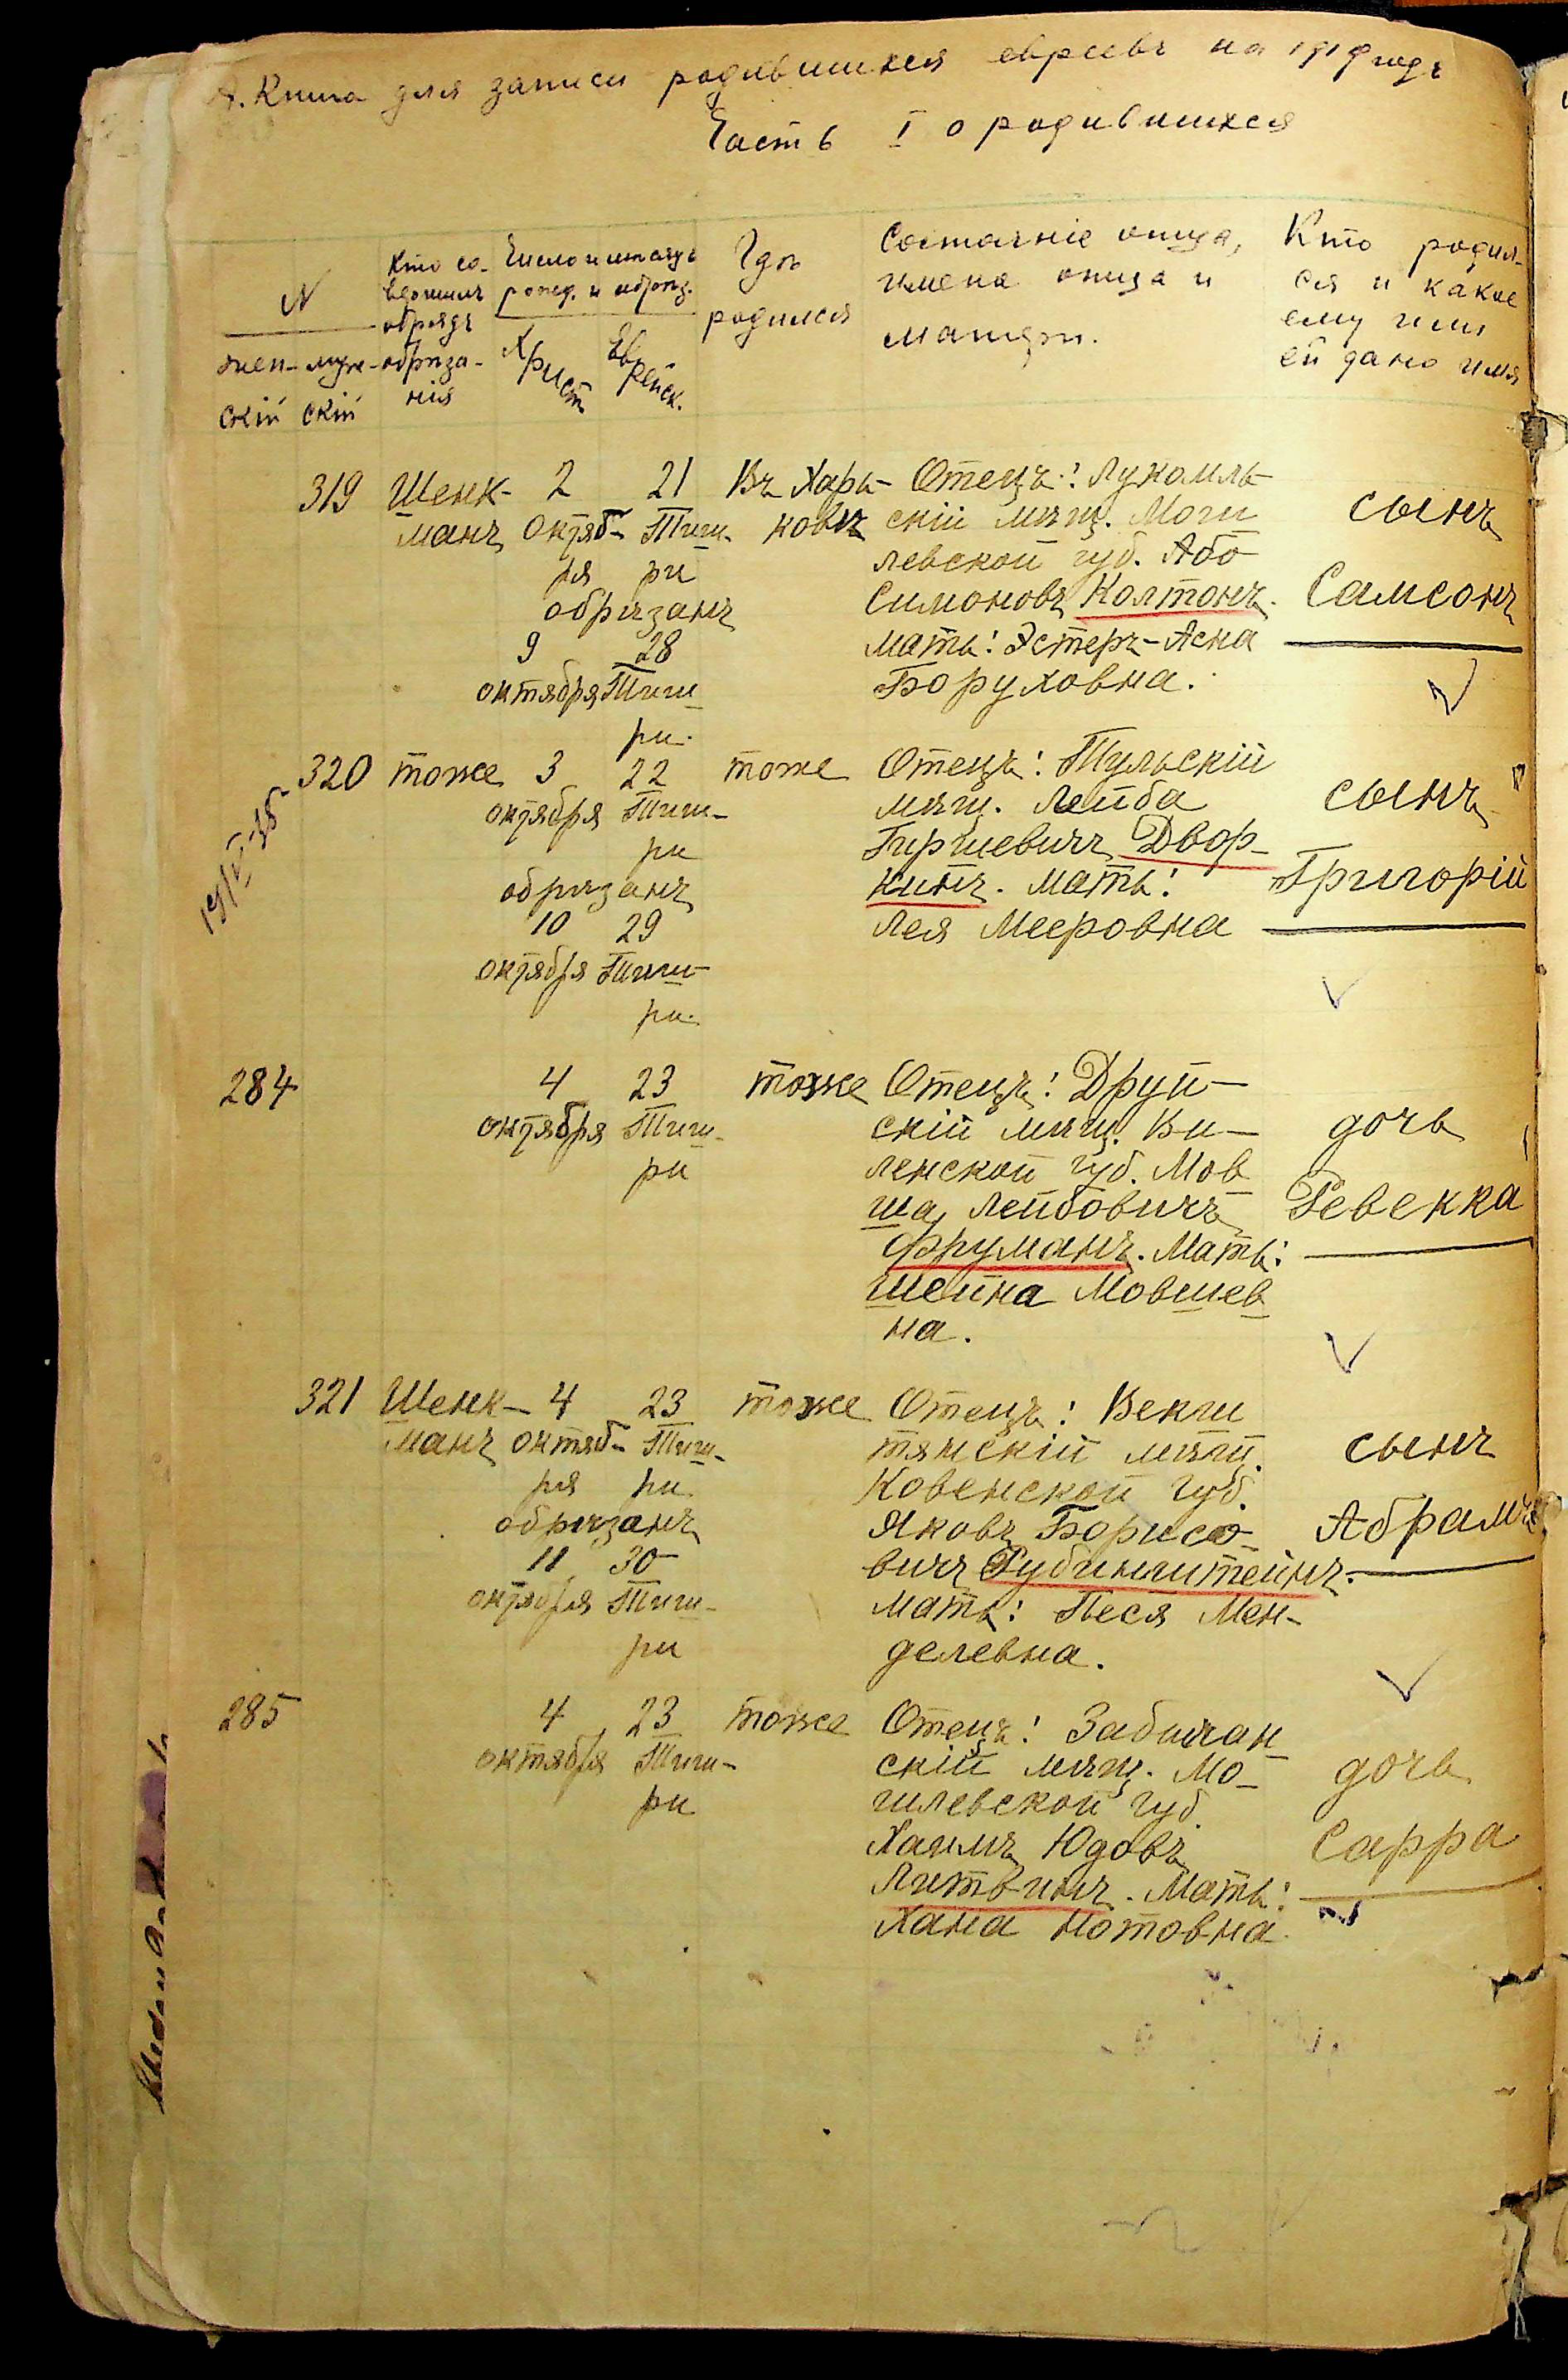 А. Книга для записи родившихся евреевъ на 1919 годъ
Часть I о родившихся
N
жен-
скій
муж-
скій
Кто со-
вершилъ
обрядъ
обрѣза-
нія
Число и мѣсяцъ
рожд. и обрѣз.
Христ.
Еврейск.
Гдѣ
родился
Состояніе отца,
имена отца и
матери.
Кто родил-
ся и какое
ему или
ей дано имя
319
Шенк-
манъ
2
Октяб-
ря
21
Тиш-
ри
обрѣзанъ
9
октября
28
Тиш
ри.
Въ Харь-
ковѣ
Отецъ: Лукомль-
скій мѣщ. Моги
левской губ. Або
Симоновъ Колтонъ.
Мать: Эстеръ-Асна
Боруховна.
сынъ
Самсонъ
320
тоже
3
октября
22
Тиш-
ри
обрѣзанъ
10
октября
29
Тиш-
ри.
тоже
Отецъ: Тульскій
мѣщ. Лейба
Гиршевичъ Двор-
кинъ. Мать:
Лея Мееровна
сынъ
Григорій
284
4
октября
23
Тиш-
ри
тоже
Отецъ: Друй-
скій мѣщ. Ви-
ленской губ. Мов
ша Лейбовичъ
Фруманъ. Мать:
Шейна Мовшев
на.
дочь
Ревекка
321
Шенк-
манъ
4
октяб-
ря
23
Тиш-
ри
обрѣзанъ
11
октября
30
Тиш-
ри
тоже
Отецъ: Векш
тянскій мѣщ.
Ковенской губ.
Яковъ Борисо-
вичъ Рубинштейнъ.
Мать: Песя Мен-
делевна.
сынъ
Абрамъ
285
4
октября
23
Тиш-
ри
тоже
Отецъ: Забычан
скій мѣщ. Мо-
гилевской губ.
Хаимъ Юдовъ
Литвинъ. Мать:
Хана Нотовна.
дочь
Сарра